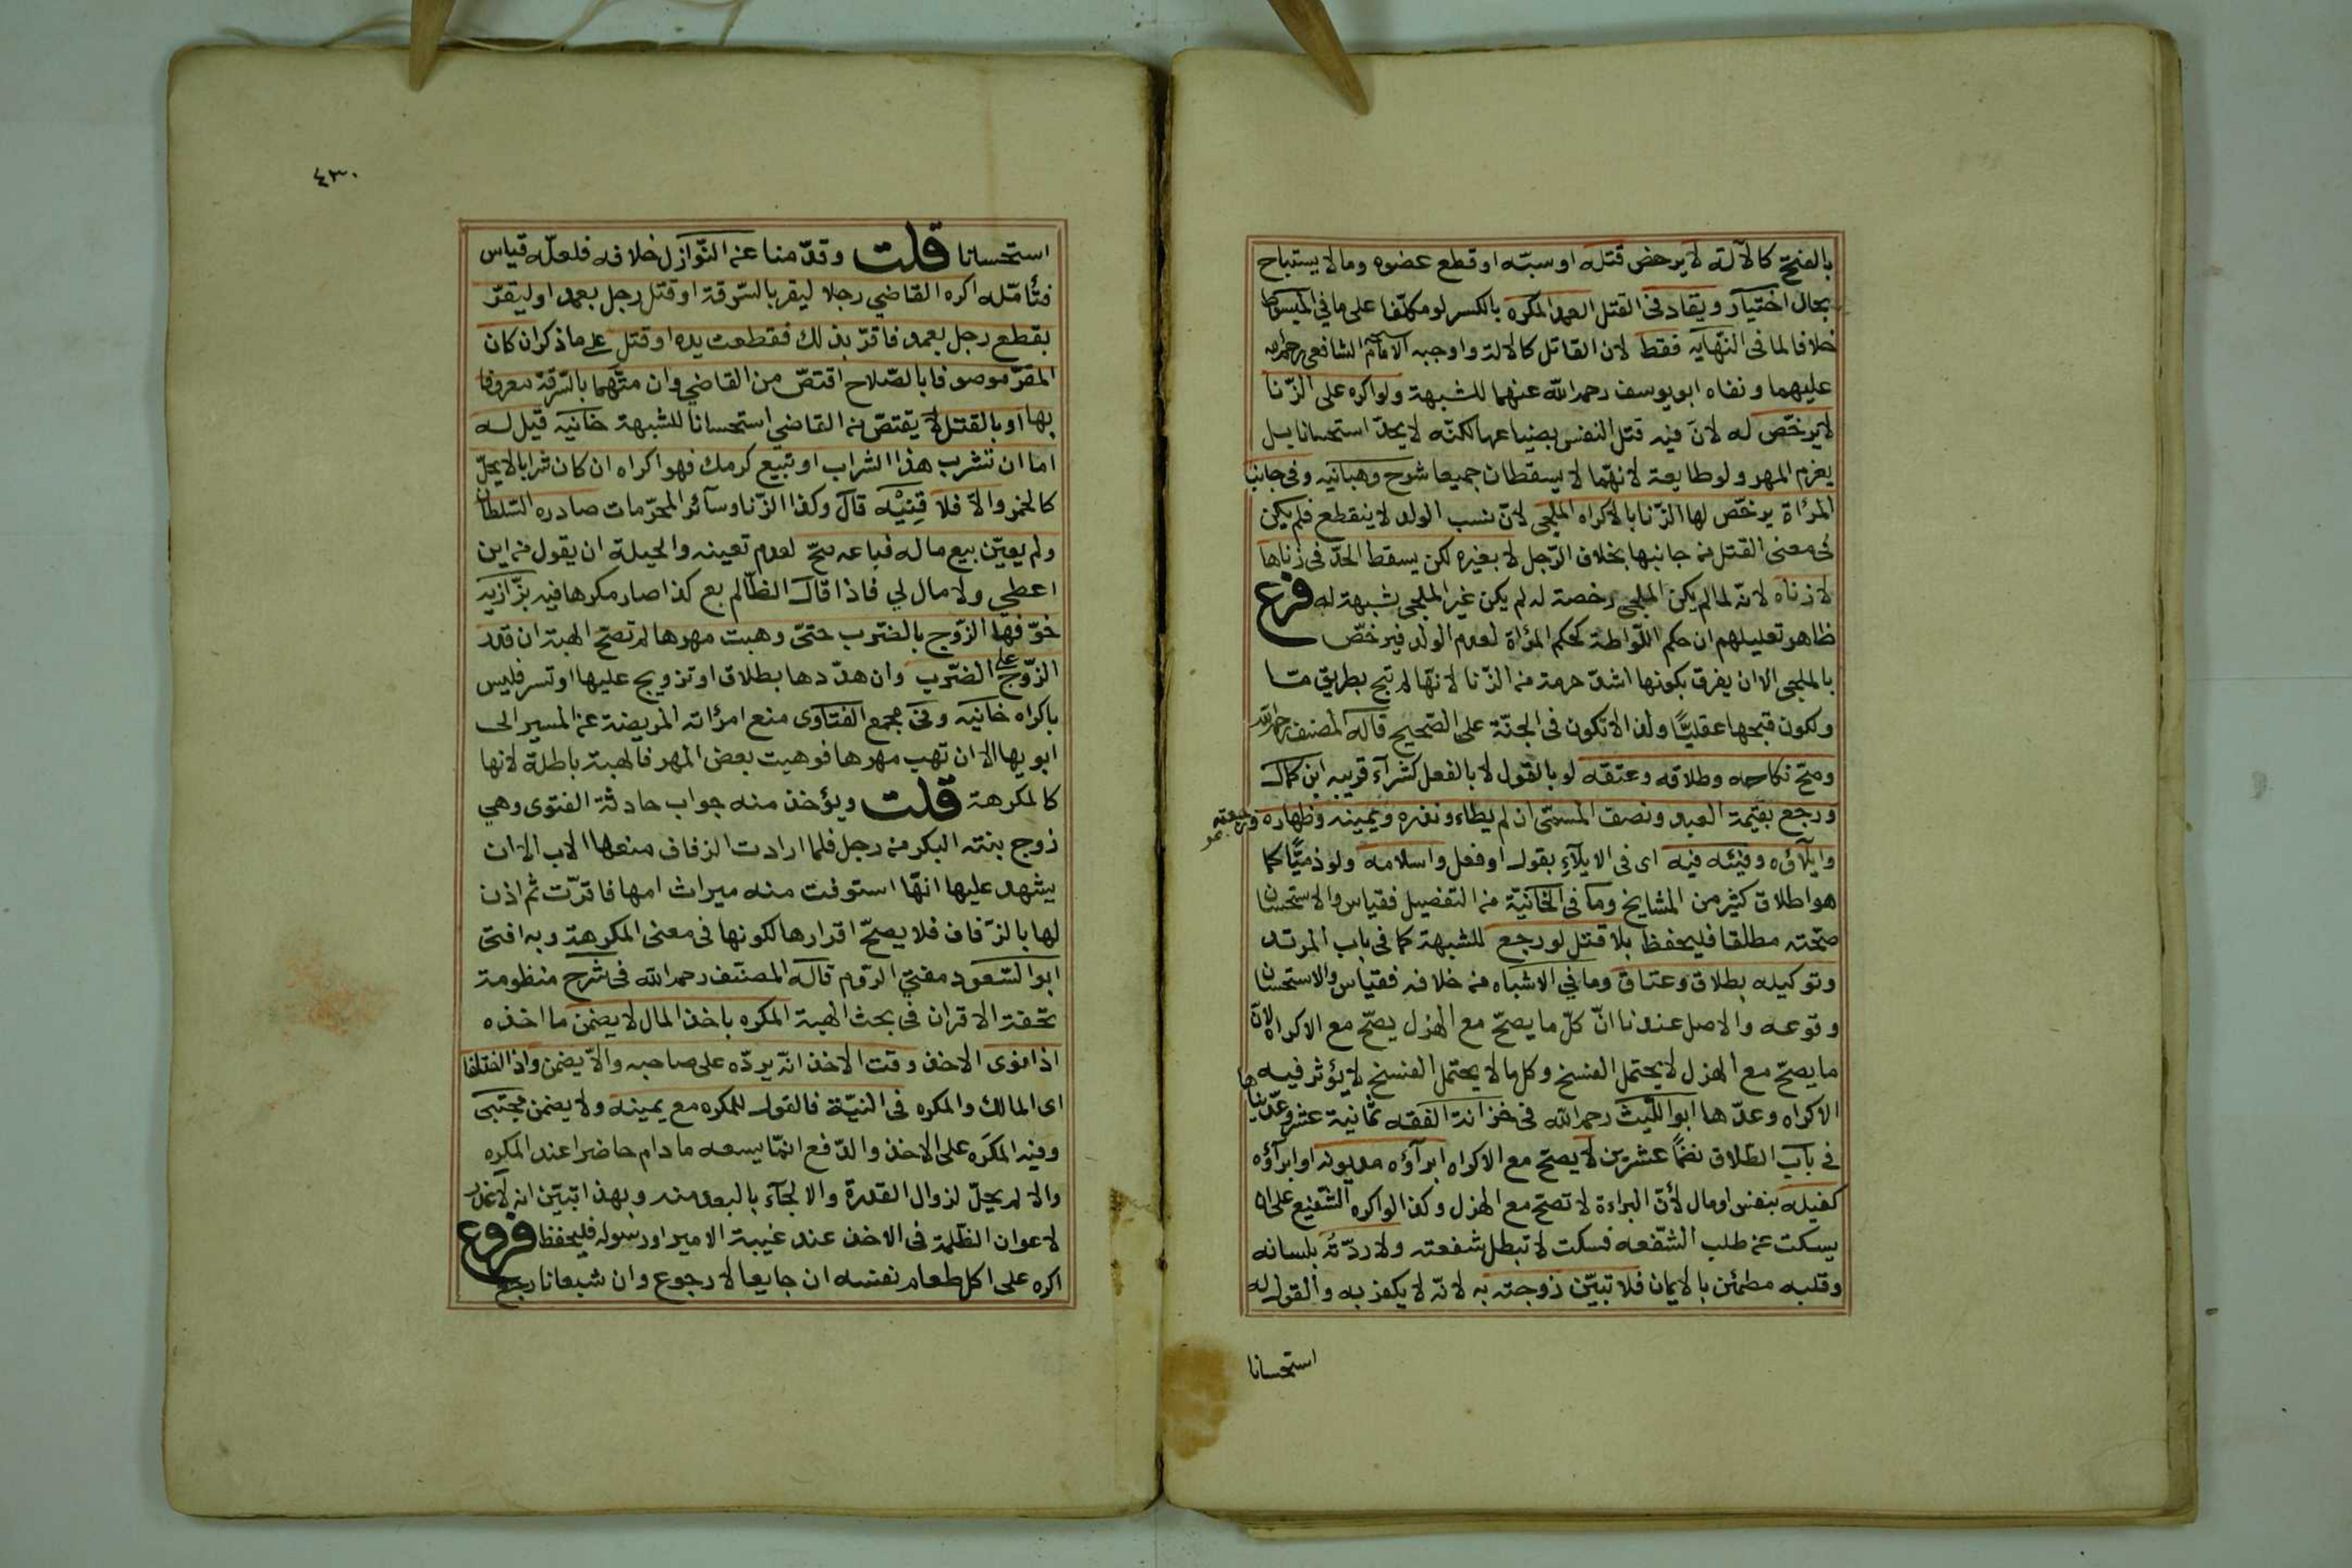 بالفتح كالآلة لا يرخص قتله او سبّه او قطع عضوه وما لا يستباح
بحال اختيار ويقاد فى القتل العمد المكره بالكسر لو مكلّفا على ما في المبسوط
خلافا لما فى النّهايه فقط لان القاتل كالالة واوجبه الامام الشافعى رحمه الله
عليهما ونفاه ابو يوسف رحمه الله عنهما للشبهة ولو اكره على الزّنا
لا يرخّص له لانّ فيه قتل النفس بضياعها لكنّه لا يحدّ استحسانا بل
يغرم المهر ولو طايعة لانهّما لا يسقطان جميعا شرح وهبانيه وفى جانب
المرأة يرخّص لها الزّنا بالاكراه الملجى لانّ نسب الولد لا ينقطع فلم يكن
فى معنى القتل من جانبها بخلاف الرّجل لا بغيره لكن يسقط الحدّ فى زناها
لا زناه لانّه لما لم يكن الملجى رخصة له لم يكن غير الملجى شبهة له فرع
ظاهر تعليلهم ان حكم اللّواطة كحكم المرأة لعدم الولد فيرخّص
بالملجى الا ان يفرق بكونها اشدّ حرمة من الزّنا لانهّا لم تبح بطريق مّا
ولكون قبحها عقليًّا ولذا لا تكون فى الجنّة على الصّحيح قاله المصنف رحمه الله
وصحّ نكاحه وطلاقه وعتقه لو بالقول لا بالفعل كشرآء قريبه ابن كمال
ورجع بقيمة العبد ونصف المسمّى ان لم يطاء ونذره ويمينه وظهاره ورجعته
وايلآؤه وفيئه فيه اى فى الايلآءِ بقول او فعل واسلامه ولو ذميًّا كما
هو اطلاق كثير من المشايخ وما فى الخانيّة من التفصيل فقياس والاستحسان
صحّته مطلقا فليحفظ بلا قتل لو رجع للشبهة كما فى باب المرتد
وتوكيله بطلاق وعتاق وما فى الاشباه من خلافه فقياس والاستحسان
وقوعه والاصل عندنا انّ كلّ ما يصحّ مع الهزل يصحّ مع الاكراه لانّ
ما يصحّ مع الهزل لا يحتمل الفسخ وكل ما لا يحتمل الفسخ لا يؤثر فيه
الاكراه وعدّها ابو اللّيث رحمه الله فى خزانة الفقه ثمّانية عشر وعدّيناها
فى باب الطّلاق نظمًا عشرين لا يصحّ مع الاكراه ابرآؤه مديونه او ابرآؤه
كفيله بنفس او مال لأنّ البراءة لا تصحّ مع الهزل وكذا لو اكره الشّفيع على ان
يسكت عن طلب الشّفعه فسكت لا تبطل شفعته ولا ردّتُه بلسانه
وقلبه مطمئن بالايمان فلا تبيّن زوجته به لانّه لا يكفر به والقول له
استحسانا
٤٣٠
استحسانا قلت وقدّمنا عن النّوازل خلافه فلعلّه قياس
فتأمّله اكره القاضي رجلا ليقر بالسّرقة او قتل رجل بعمد او ليقرّ
بقطع رجل بعمد فاقرّ بذلك فقطعت يده او قتل على ما ذكر ان كان
المقرّ موصوفا بالصّلاح اقتصّ من القاضي وان متّهما بالسّرقة معروفا
بها او بالقتل لا يقتصّ من القاضي استحسانا للشبهة خانيه قيل له
اما ان تشرب هذا الشراب او تبيع كرمك فهو اكراه ان كان شرابا لا يحلّ
كالخمر والا فلا قِنْيَه قال وكذا الزّنا وسآئر المحرّمات صادره السّلطان
ولم يعيّن بيع ماله فباعه صحّ لعدم تعينه والحيلة ان يقول من اين
اعطى ولا مال لي فاذا قال الظّالم بع كذا صار مكرها فيه بزّازيه
خوّفها الزّوج بالضرب حتىّ وهبت مهرها لم تصحّ الهبة ان قدر
الزّوج على الضّرب وان هدّدها بطلاق او تزويج عليها او تسر فليس
باكراه خانيه وفى مجمع الفتاوى منع امرأته المريضة عن المسير الى
ابويها الا ان تهب مهرها فوهبت بعض المهر فالهبة باطلة لانها
كالمكرهة قلت ويؤخذ منه جواب حادثة الفتوى وهي
زوج بنته البكر من رجل فلما ارادت الزفاف منعها الاب الا ان
يشهد عليها انهّا استوفت منه ميراث امها فاقرّت ثم اذن
لها بالزّفاف فلا يصحّ اقرارها لكونها فى معنى المكرهة وبه افتى
ابو السّعود مفتي الرّوم قاله المصنّف رحمه الله فى شرح منظومة
تحفة الاقران فى بحث الهبة المكره باخذ المال لا يضمن ما اخذه
اذا نوى الاخذ وقت الاخذ انّه يردّه على صاحبه والاّ يضمن واذا اختلفا
اى المالك والمكره فى النيّة فالقول للمكره مع يمينه ولا يضمن مجتبى
وفيه المكَره على الاخذ والدّفع انمّا يسعه ما دام حاضرا عند المكره
والا لم يحلّ لزوال القدرة والالجآء بالبعد منه وبهذا تبيّن انه لا عذر
لاعوان الظّلمة فى الاخذ عند غيبة الامير او رسوله فليحفظ فروع
اكره على اكل طعام نفسه ان جايعا لا رجوع وان شبعانا رجع